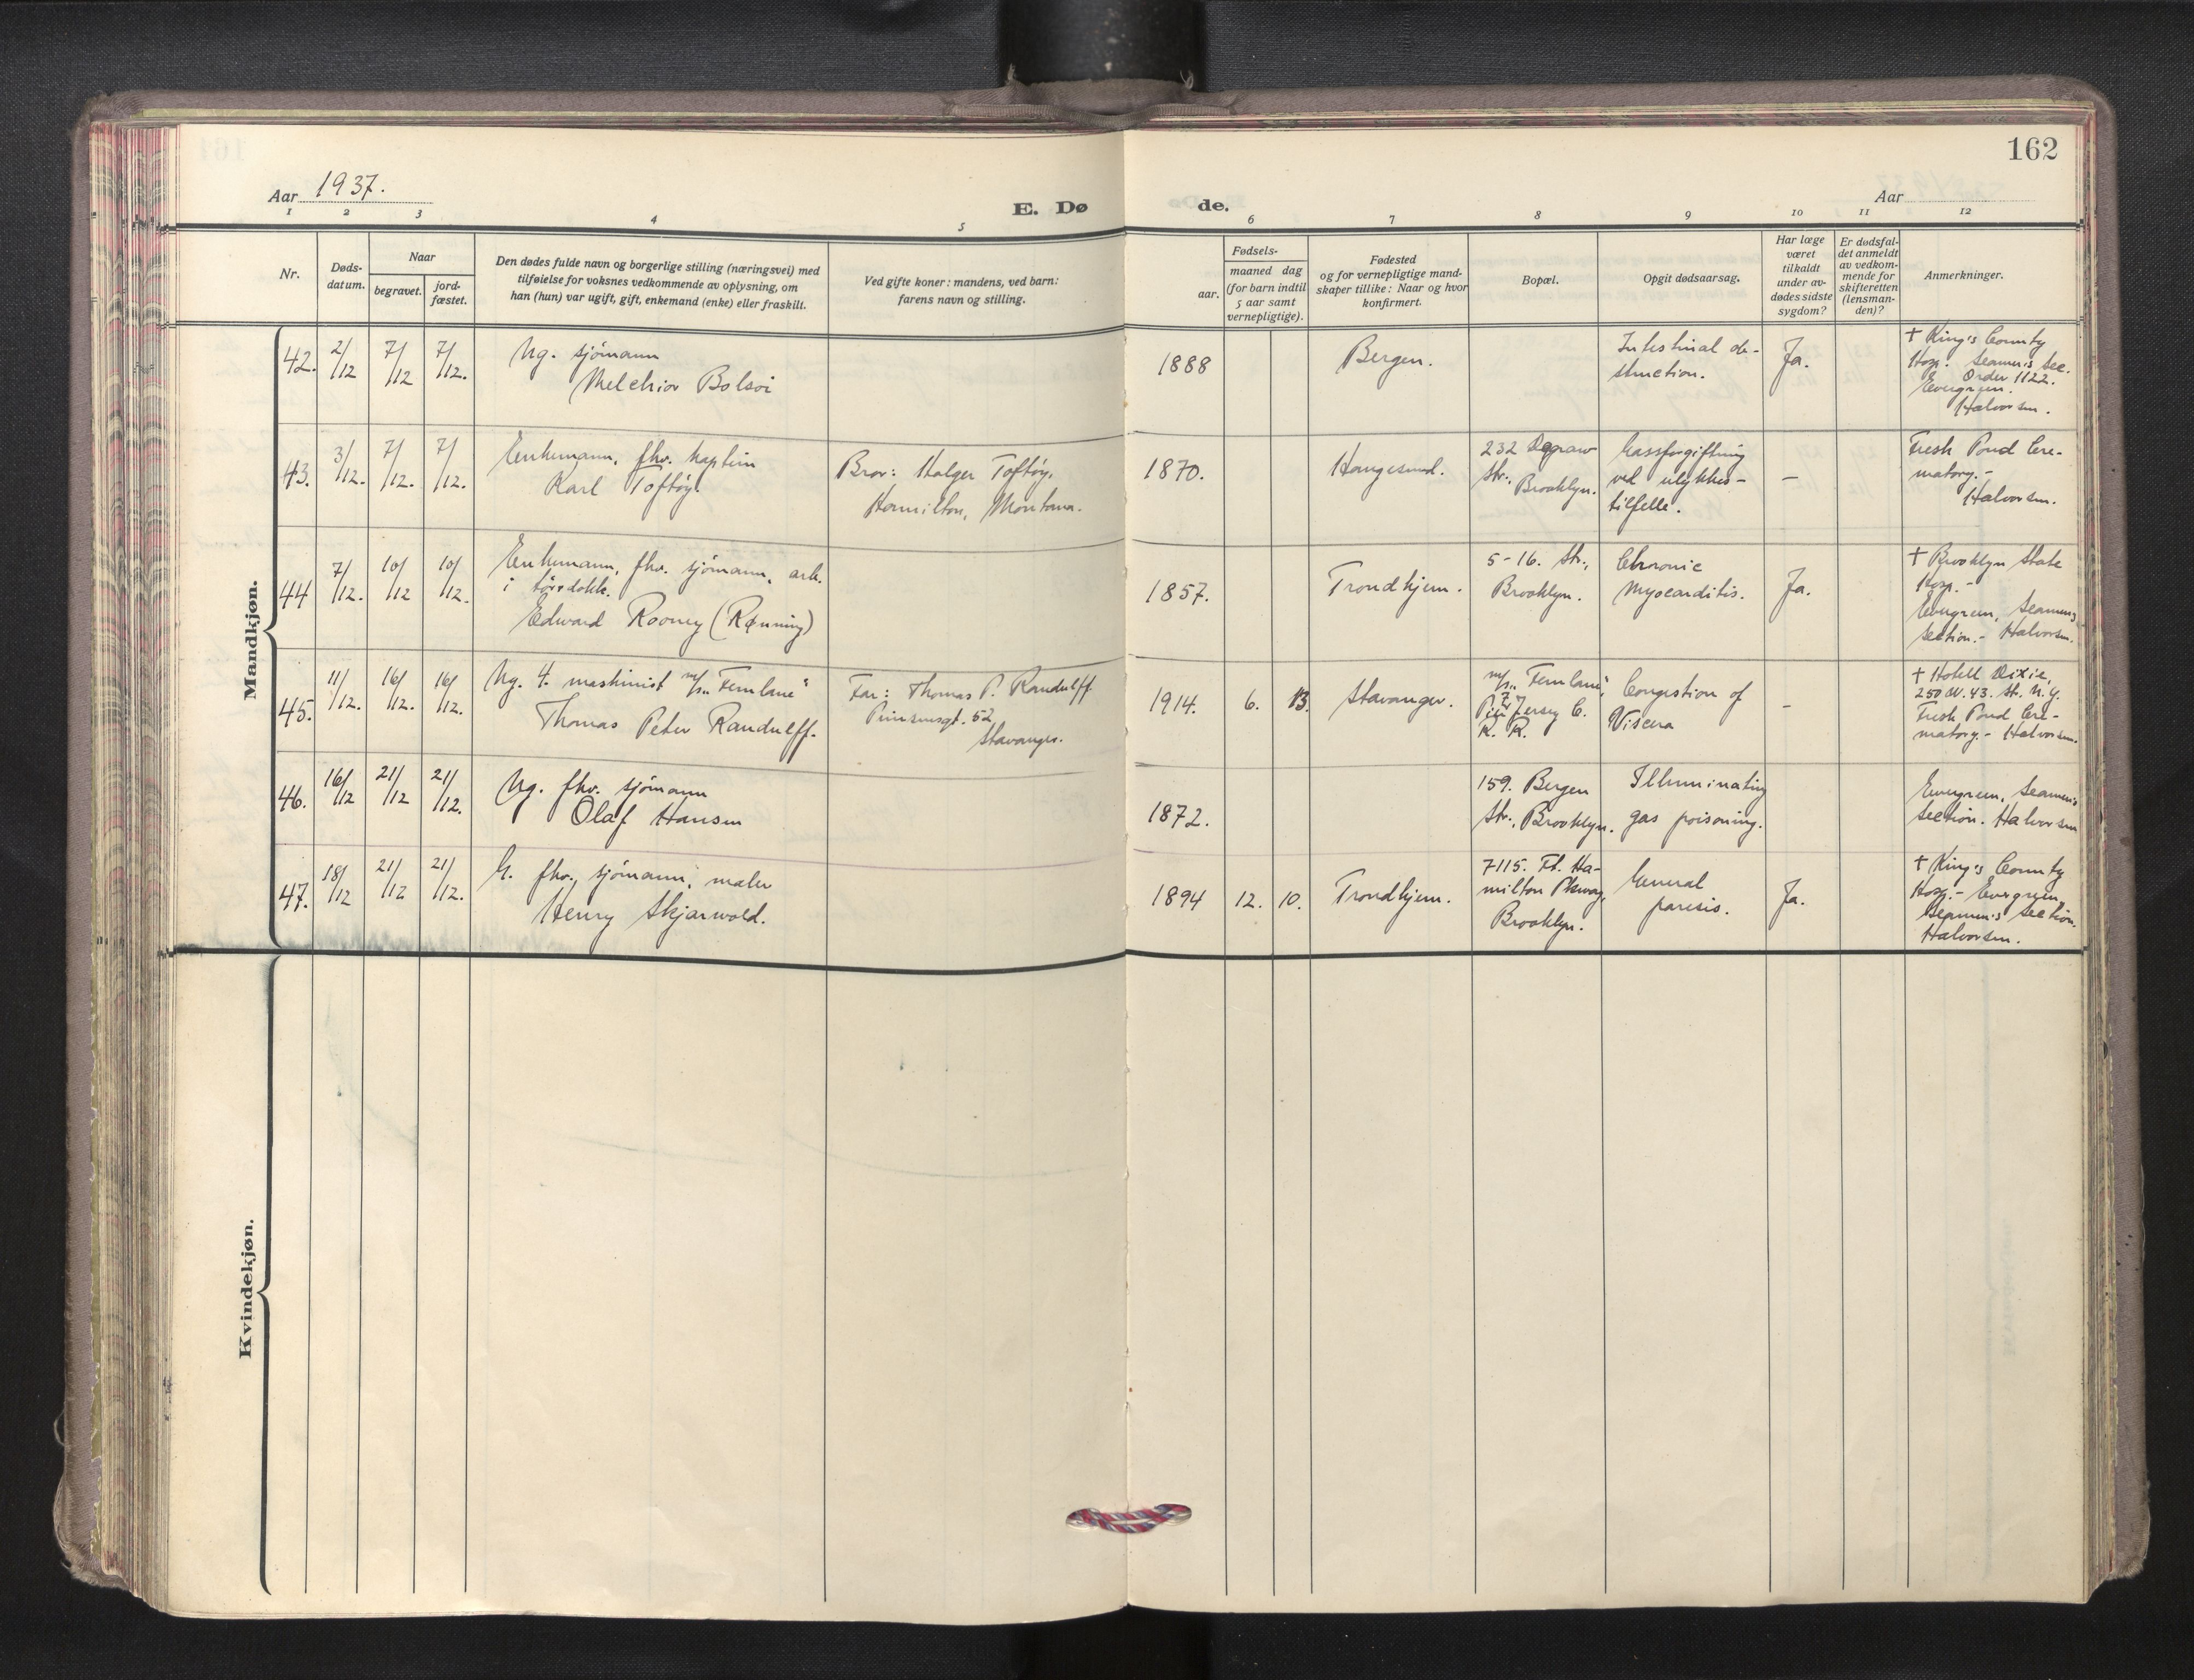 162
Aar 1937.
E. Dø
de.
Aar
1 2 3 4 5 6 7 8 9 10 11 12
Nr.
Døds-
datum.
Naar
begravet.
jord-
fæstet.
Den dødes fulde navn og borgerlige stilling (næringsvei) med
tilføielse for voksnes vedkommende av oplysning, om
han (hun) var ugift, gift, enkemand (enke) eller fraskilt.
Ved gifte koner: mandens, ved barn:
farens navn og stilling.
Fødsels-
aar.
maaned dag
(for barn indtil
5 aar samt
vernepligtige).
Fødested
og for vernepligtige mand-
skaper tillike: Naar og hvor
konfirmert.
Bopæl.
Opgit dødsaarsag.
Har læge
været
tilkaldt
under av-
dødes sidste
sygdom?
Er dødsfal-
det anmeldt
av vedkom-
mende for
skifteretten
(lensman-
den)?
Anmerkninger.
Mandkjøn.
42. 2/12 7/12 7/12.
Ug. sjömann
Melchior Bolsoi
1888
Bergen.
Intestinal ob-
struction.
Ja.
† King's County
Hosp. Seamen's Sec.
Order 1122.
Evergreen.
Halvorsen.
43. 3/12. 7/12. 7/12.
Enkemann, fhv. kaptein
Karl Toftöy.
Bror: Holger Toftöy,
Hamilton, Montana.
1870.
Haugesund.
232 Degraw
Str., Brooklyn.
Gassforgiftning
ved ulykkes-
tilfelle.
-
Fresh Pond Cre-
matory.-
Halvorsen.
44 7/12. 10/12 10/12.
Enkemann, fhv. sjömann, arb.
i törrdokk.
Edward Rooney (Rönning)
1857.
Trondhjem.
5-16. Str.,
Brooklyn.
Chronic
Myocarditis.
Ja.
† Brooklyn State
Hosp.-
Evergreen, Seamens
Section.- Halvorsen.
45. 11/12. 16/12. 16/12.
Ug. 4. maskinist m/s „Fernlane“
Thomas Peter Randulff.
Far: Thomas P. Randulff
Prinsensgt. 52
Stavanger.
1914. 6. 13.
Stavanger.
m/s „Fernlane“,
Pier 7 Jersey C.
R. R.
Congestion of
Viscera
-
† Hotell Dixie,
250 W. 43. St. N.Y.
Fresh Pond Cre-
matory.- Halvorsen.
46. 16/12 21/12 21/12.
Ug. fhv. sjömann
Olaf Hansen
1872.
159. Bergen
Str., Brooklyn.
Illuminating
gas poisoning.
Evergreen, Seamen's
Section. Halvorsen
47. 18/12 21/12 21/12.
G. fhv. sjömann, maler
Henry Skjarvold.
1894 12. 10.
Trondhjem.
7115. Ft. Ha-
milton Pkway,
Brooklyn.
General
paresis.
Ja.
† King's County
Hosp.- Evergreen
Seamen's Section.
Halvorsen.
Kvindekjøn.